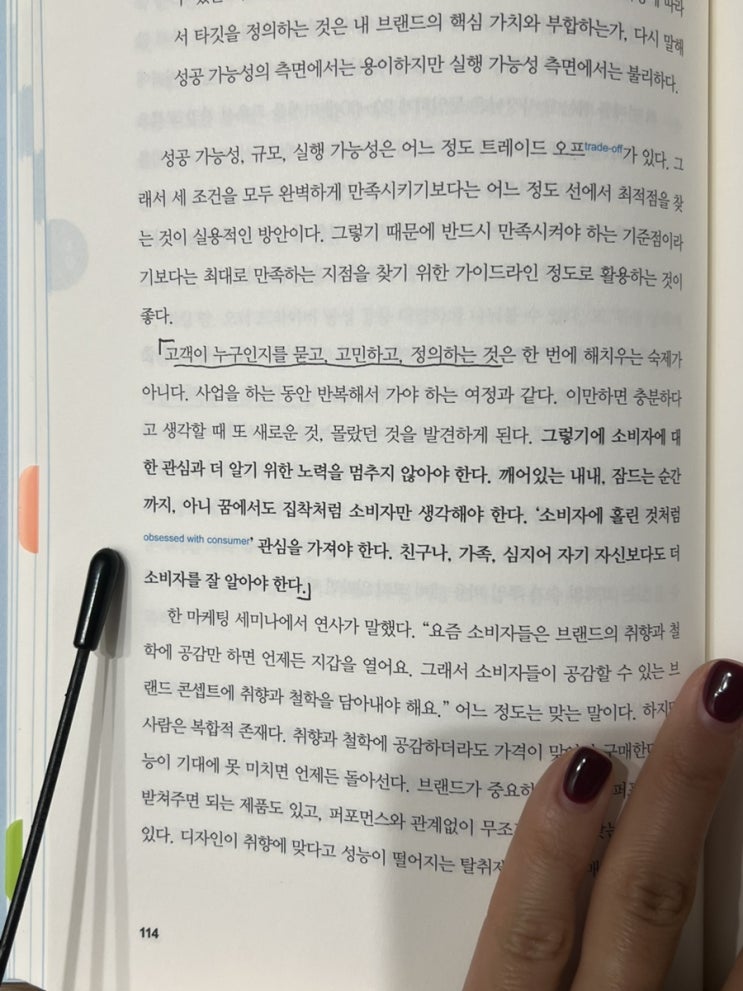 서 타깃을 정의하는 것은 내 브랜드의 핵심 가치와 부합하는가, 다시 말해
성공 가능성의 측면에서는 용이하지만 실행 가능성 측면에서는 불리하다.
성공 가능성, 규모, 실행 가능성은 어느 정도 트레이드 오프trade-off가 있다. 그
래서 세 조건을 모두 완벽하게 만족시키기보다는 어느 정도 선에서 최적점을 찾
는 것이 실용적인 방안이다. 그렇기 때문에 반드시 만족시켜야 하는 기준점이라
기보다는 최대로 만족하는 지점을 찾기 위한 가이드라인 정도로 활용하는 것이
좋다.
고객이 누구인지를 묻고, 고민하고, 정의하는 것은 한 번에 해치우는 숙제가
아니다. 사업을 하는 동안 반복해서 가야 하는 여정과 같다. 이만하면 충분하다
고 생각할 때 또 새로운 것, 몰랐던 것을 발견하게 된다. 그렇기에 소비자에 대
한 관심과 더 알기 위한 노력을 멈추지 않아야 한다. 깨어있는 내내, 잠드는 순간
까지, 아니 꿈에서도 집착처럼 소비자만 생각해야 한다. ‘소비자에 홀린 것처럼
obsessed with consumer’ 관심을 가져야 한다. 친구나, 가족, 심지어 자기 자신보다도 더
소비자를 잘 알아야 한다.
한 마케팅 세미나에서 연사가 말했다. “요즘 소비자들은 브랜드의 취향과 철
학에 공감만 하면 언제든 지갑을 열어요. 그래서 소비자들이 공감할 수 있는 브
랜드 콘셉트에 취향과 철학을 담아내야 해요.” 어느 정도는 맞는 말이다. 하지만
사람은 복합적 존재다. 취향과 철학에 공감하더라도 가격이
능이 기대에 못 미치면 언제든 돌아선다. 브랜드가
받쳐주면 되는 제품도 있고, 퍼포먼스와 관계없이
있다. 디자인이 취향에 맞다고 성능이 떨어지는
114